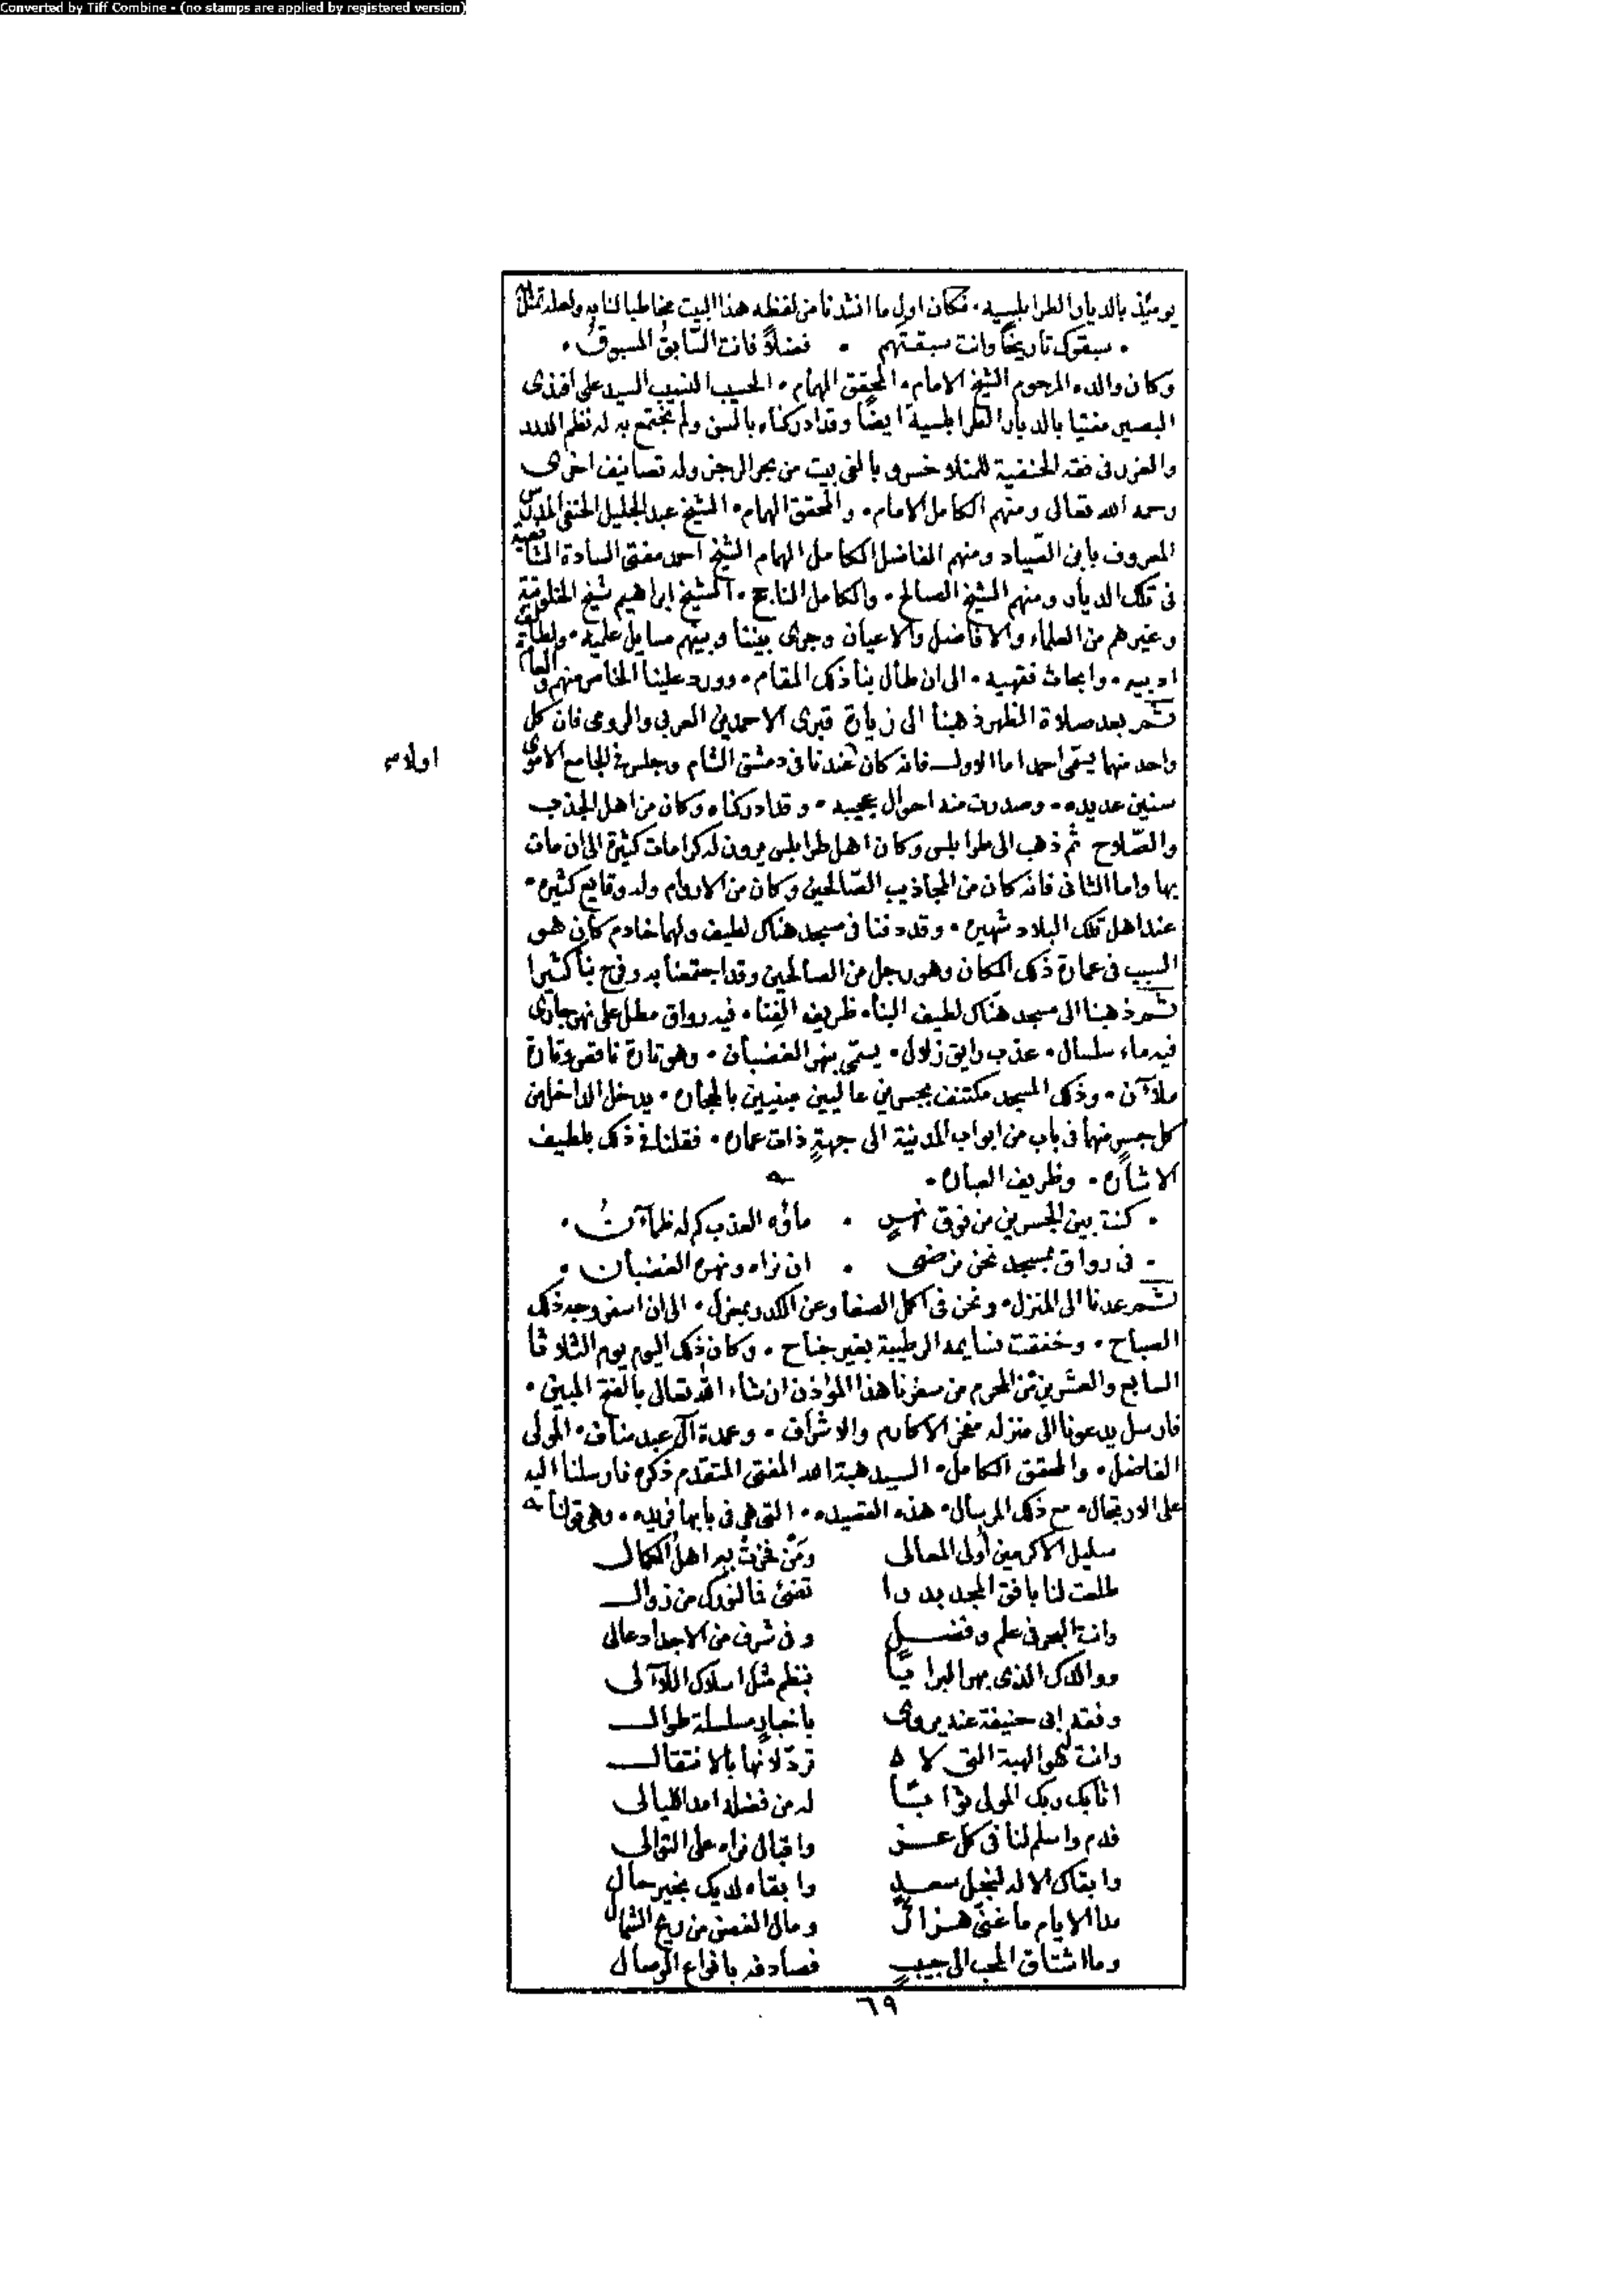 Converted by Tiff Combine - (no stamps are applied by registered version)
يومئذ بالديار الطرابلسيه ٠ فكان اول ما انشدنا من لفظه هذا البيت مخاطبا لنا به ولعله تمثل
٠ سبقوك تاريخًا وانت سبقتهم ٠ فضلاً فانت السّابقُ المسبوقُ ٠
وكان والده المرحوم الشيخ الامام ٠ المحقق الهمام ٠ الحسيب النسيب السيد على افندى
البصير مفتيا بالديار الطرابلسية ايضًا وقد ادركناه بالسن ولم نجتمع به له نظم الدرر
والغرر فى فقه الحنفية للمنلا خسرو بالفى بيت من بحر الرجز وله تصانيف اخرى
رحمه الله تعالى ومنهم الكامل الامام ٠ والمحقق الهمام ٠ الشيخ عبد الجليل الحنفى المدرس
المعروف بابن الصّياد ومنهم الفاضل الكامل الهمام الشيخ احمد مفتى السادة الشافعية
فى تلك الديار ومنهم الشيخ الصالح ٠ والكامل الناجح ٠ الشيخ ابراهيم شيخ الخلوتية
وغيرهم من العلماء والافاضل والاعيان وجرى بيننا وبينهم مسايل علميه ٠ ولطايف
ادبيه ٠ وابحاث فقهيه ٠ الى ان طال بنا ذلك المقام ٠ وورد علينا الخاص منهم والعام
ثم بعد صلاة الظهر ذهبنا الى زيارة قبرى الاحمدين العربى والرومى فان كل
واحد منهما يسمّى احمد اما الاول فانه كان عندنا فى دمشق الشام وجلس فى الجامع الاموى
اولا
سنين عديده ٠ وصدرت منه احوال عجيبه ٠ وقد ادركناه وكان من اهل الجذب
والصّلاح ثم ذهب الى طرابلس وكان اهل طرابلس يرون له كرامات كثيرة الى ان مات
بها واما الثانى فانه كان من المجاذيب الصّالحين وكان من الاروام وله وقايع كثيره ٠
عند اهل تلك البلاد شهيره ٠ وقد دفنا فى مسجد هناك لطيف ولهما خادم كان هو
السبب فى عمارة ذلك المكان وهو رجل من الصالحين وقد اجتمعنا به وفرح بنا كثيرا
ثم ذهبنا الى مسجد هناك لطيف البناء ظريف الفِنا ٠ فيه رواق مطل على نهر جارى
فيه ماء سلسال ٠ عذب رايق زلال ٠ يسمّى بنهر الغضبان ٠ وهو تارة ناقص وتارة
ملآن ٠ وذلك المسجد مكتنف بجسرين عاليين مبنيين بالحجاره ٠ يدخل الداخل من
كل جسرٍ منهما فى باب من ابواب المدينة الى جهةٍ ذات عماره ٠ فقلنا فى ذلك بلطيف
الاشاره ٠ وظريف العباره ٠
٠ كنت بين الجسرين من فوق نهرٍ ٠ ماؤه العذب كم له ظمآنُ ٠
٠ فى رواق بمسجد نحن نرضى ٠ ان نراه ونهره الغضبان ٠
ثم عدنا الى المنزل ٠ ونحن فى اكل الصفا وعن الكدر بمعزل ٠ الى ان اسفر وجه ذلك
الصباح ٠ وخفقت نسايمه الرطيبة بغير جناح ٠ وكان ذلك اليوم يوم الثلاثا
السابع والعشرين من المحرم من سفرنا هذا المؤذن ان شاء الله تعالى بالفتح المبين ٠
فارسل يدعونا الى منزله مفخر الاكارم والاشراف ٠ وعمدة آل عبد مناف ٠ المولى
الفاضل ٠ والمحقق الكامل ٠ السيد هبة الله المفتى المتقدم ذكره فارسلنا اليه
على الارتجال ٠ مع ذلك المرسال ٠ هذه القصيده ٠ التى هى فى بابها فريده ٠ وهى قولنا
سليل الاكرمين أولى المعالى ومَنْ فخرت به اهل الكمال
طلعت لنا بافق المجد بدرا تضئ فما لنورك من زوال
وانت البحر فى علم وفضلٍ وفى شرف من الاجداد عالى
ووالدك الذى بهر البرايا بنظم مثل اسلاك اللآلى
وفقه ابى حنيفة عنه يروى باخبارٍ مسلسلة طوال
وانت الهبة التى لا تردّ لانها بالانتقال
اثابك ربك المولى ثوابًا له من فضله امد الليالى
فدم واسلم لنا فى كل عز واقبال نراه على التوالى
وابقاك الاله لنجل سعدٍ وابقاه لديك بخير حال
مدا الايام ما غنى هزار ومال الغصن من ريح الشمال
وما اشتاق المحب الى حبيبٍ فصادفه بانواع الوصال
٦٩